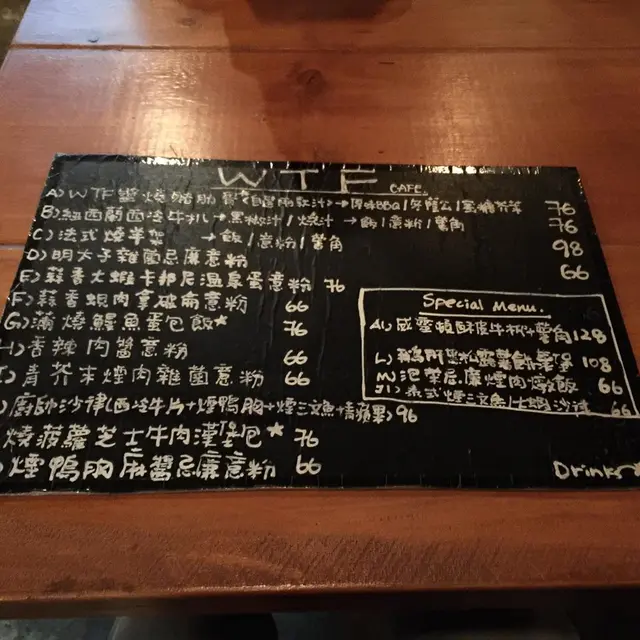 WTF CAFE
A) WTF醬燒豬肋骨(自選兩款汁)→原味BBQ/牙薩公/蜜糖芥茉 76
B) 紐西蘭西冷牛扒→黑椒汁/燒汁→飯/意粉/薯角 76
C) 法式燒羊架→飯/意粉/薯角 98
D) 明太子雜菌忌廉意粉 66
E) 蒜香大蝦卡邦尼温泉蛋意粉 76
F) 蒜香蜆肉拿破崙意粉 66
G) 蒲燒鰻魚蛋包飯* 76
香辣肉醬意粉 66
青芥末煙肉雜菌意粉 66
廚師沙律(西冷牛片+煙鴨胸+煙三文魚+青蘋果) 96
燒菠蘿芝士牛肉漢堡包* 76
煙鴨胸麻醬忌廉意粉 66
Special Menu.
牛柳+薯角 128
L) 鵝肝黑松露 108
M) 泡菜忌廉煙肉飯 66
煙三文魚 沙律 66
Drinks